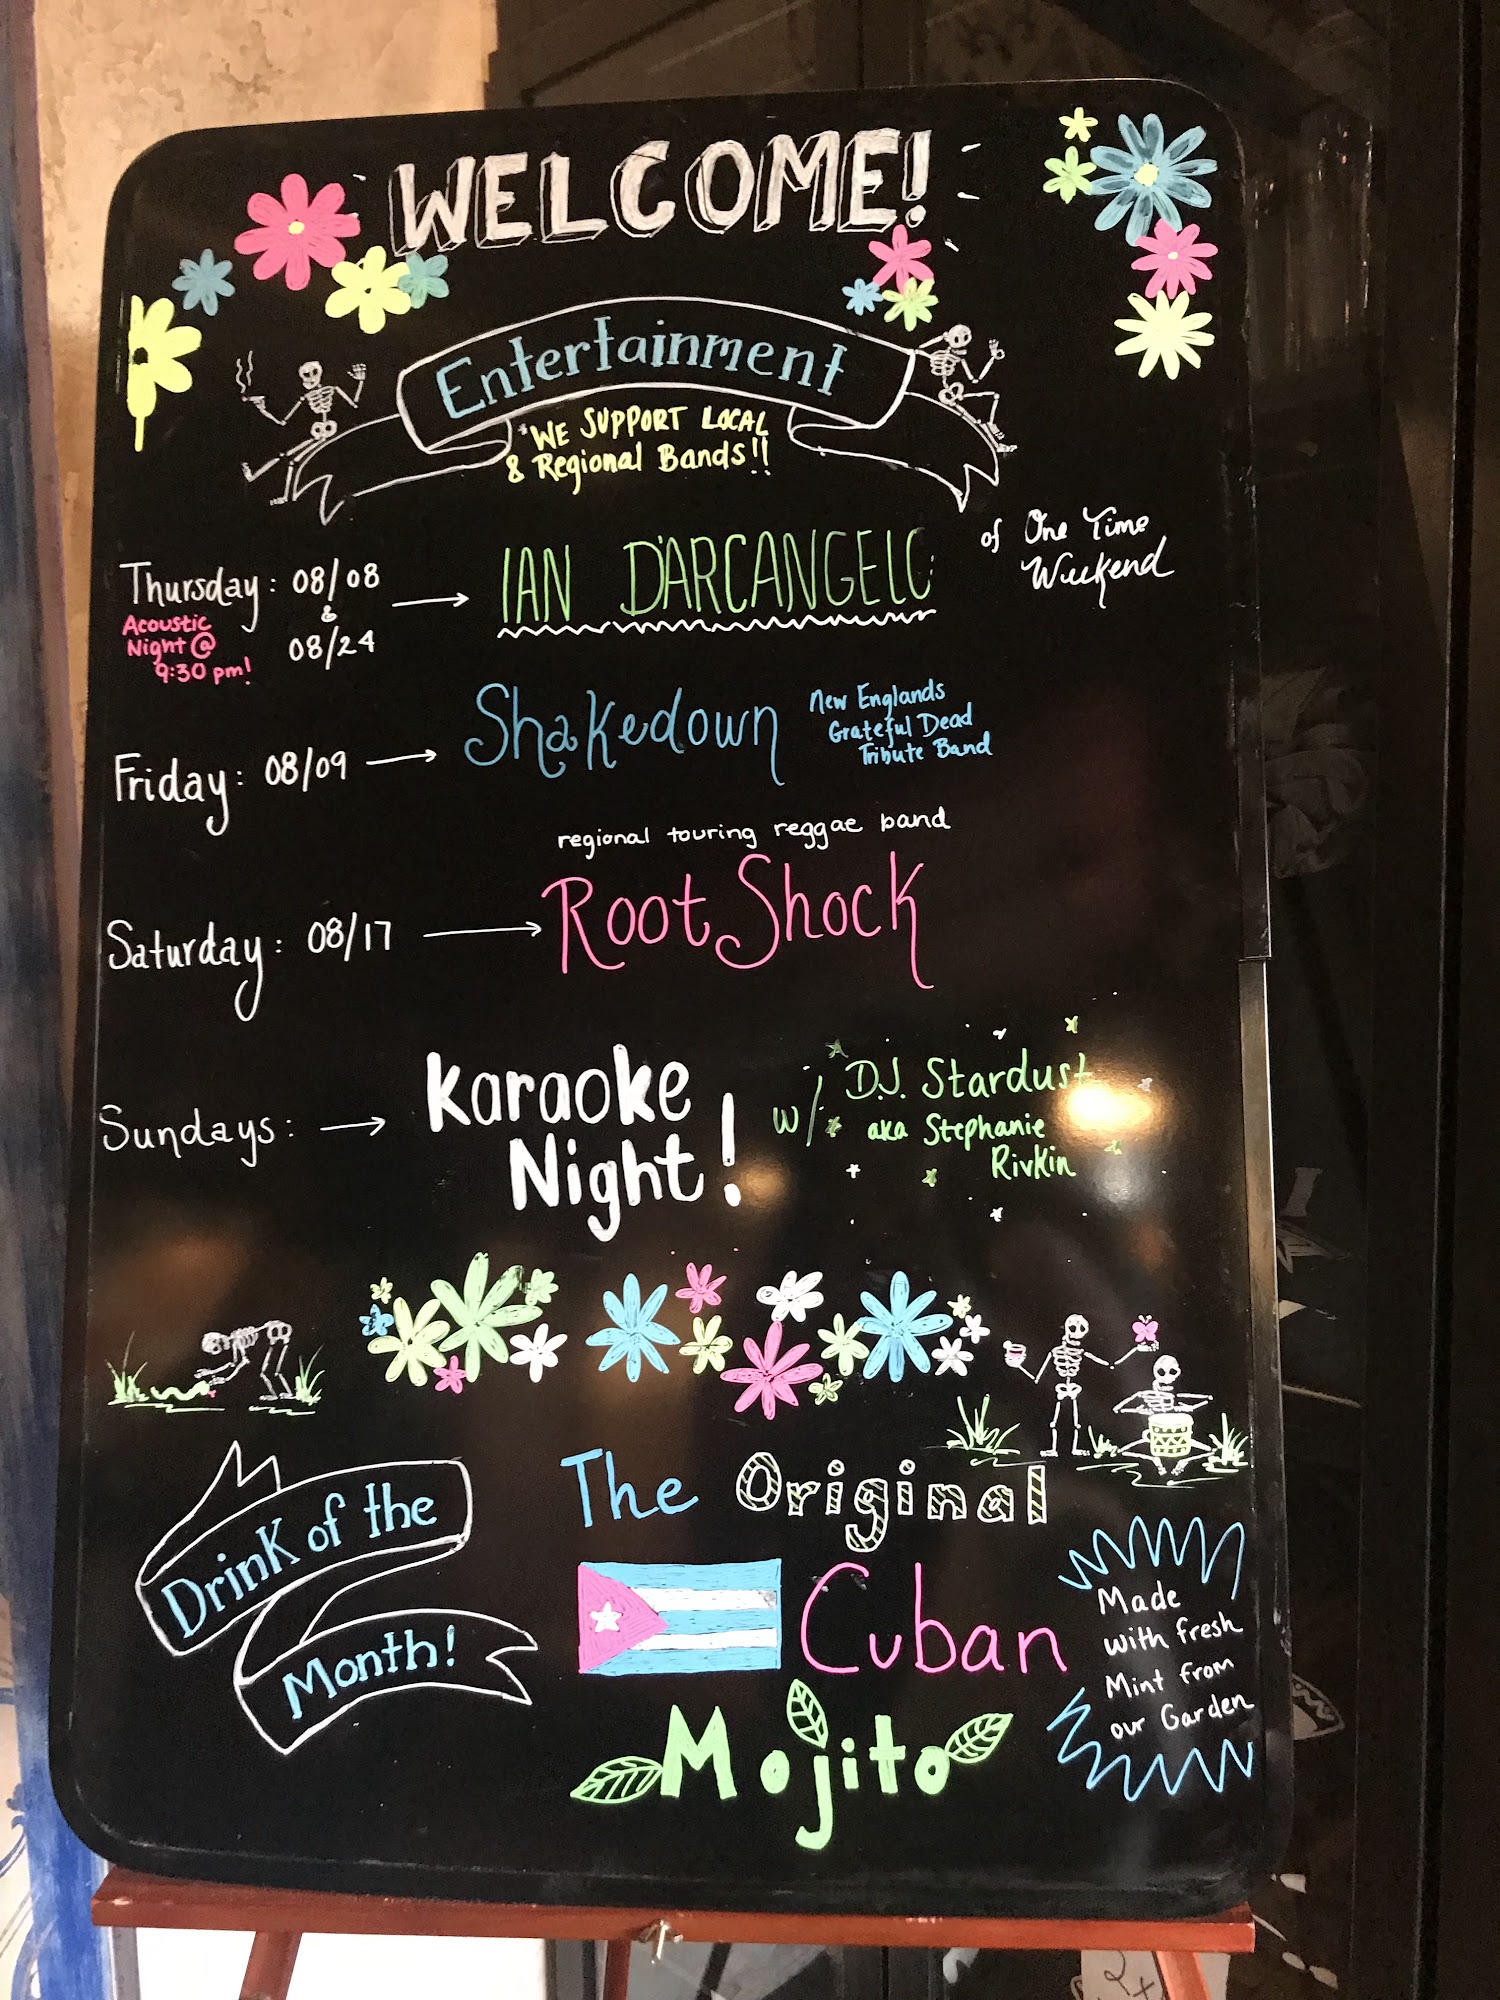 WELCOME!
Entertainment
*WE SUPPORT LOCAL
& Regional Bands!!
Thursday: 08/08
&
08/24
Acoustic
Night @
9:30 pm!
IAN D'ARCANGELO
of One Time
Weekend
Friday: 08/09
Shakedown
New Englands
Grateful Dead
Tribute Band
regional touring reggae band
Saturday: 08/17
Root Shock
Sundays:
Karaoke
Night!
w/ D.J. Stardust
aka Stephanie
Rivkin
Drink of the
Month!
The Original
Cuban
Mojito
Made
with fresh
Mint from
our Garden